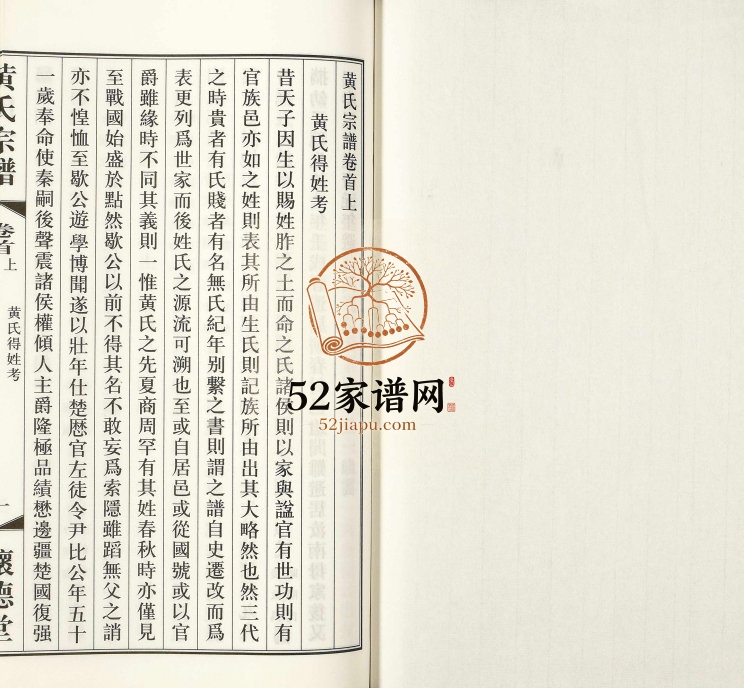 黄氏宗譜卷首上
黄氏得姓考
昔天子因生以賜姓胙之土而命之氏諸侯則以家與諡官有世功則有
官族邑亦如之姓則表其所由生氏則記族所由出其大略然也然三代
之時貴者有氏賤者有名無氏紀年别繫之書則謂之譜自史遷改而爲
表更列爲世家而後姓氏之源流可溯也至或自居邑或從國號或以官
爵雖緣時不同其義則一惟黄氏之先夏商周罕有其姓春秋時亦僅見
至戰國始盛於點然歇公以前不得其名不敢妄爲索隱雖蹈無父之誚
亦不惶恤至歇公遊學博聞遂以壯年仕楚厯官左徒令尹比公年五十
一歲奉命使秦嗣後聲震諸侯權傾人主爵隆極品績懋邊疆楚國復强
黄氏宗譜
卷首上
黄氏得姓考
一
懷德堂
52家谱网
52jiapu.com